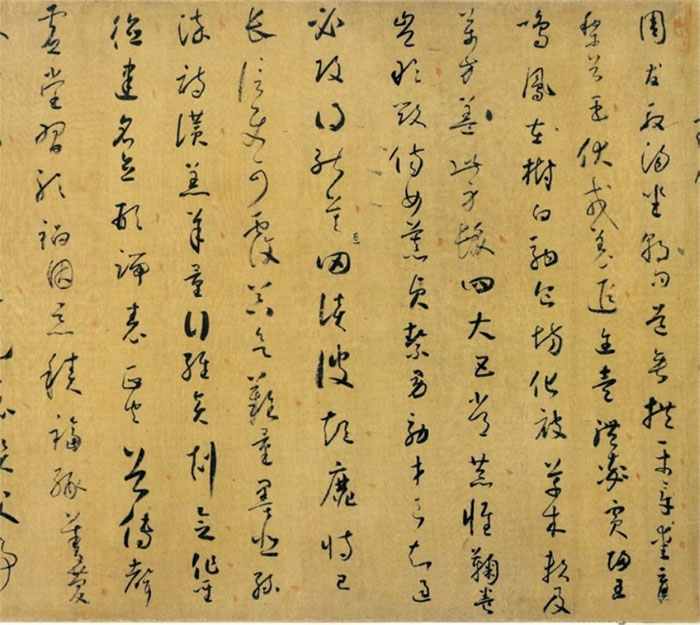 周發殷湯坐朝問道垂拱平章愛育
黎首臣伏戎羌遐邇壹體率賓歸王
鳴鳳在樹白駒食場化被草木賴及
萬方蓋此身髮四大五常恭惟鞠養
豈敢毀傷女慕貞絜男效才良知過
必改得能莫忘罔談彼短靡恃己
長信使可覆器欲難量墨悲絲
染詩讚羔羊景行維賢剋念作聖
德建名立形端表正空谷傳聲
虛堂習聽禍因惡積福緣善慶